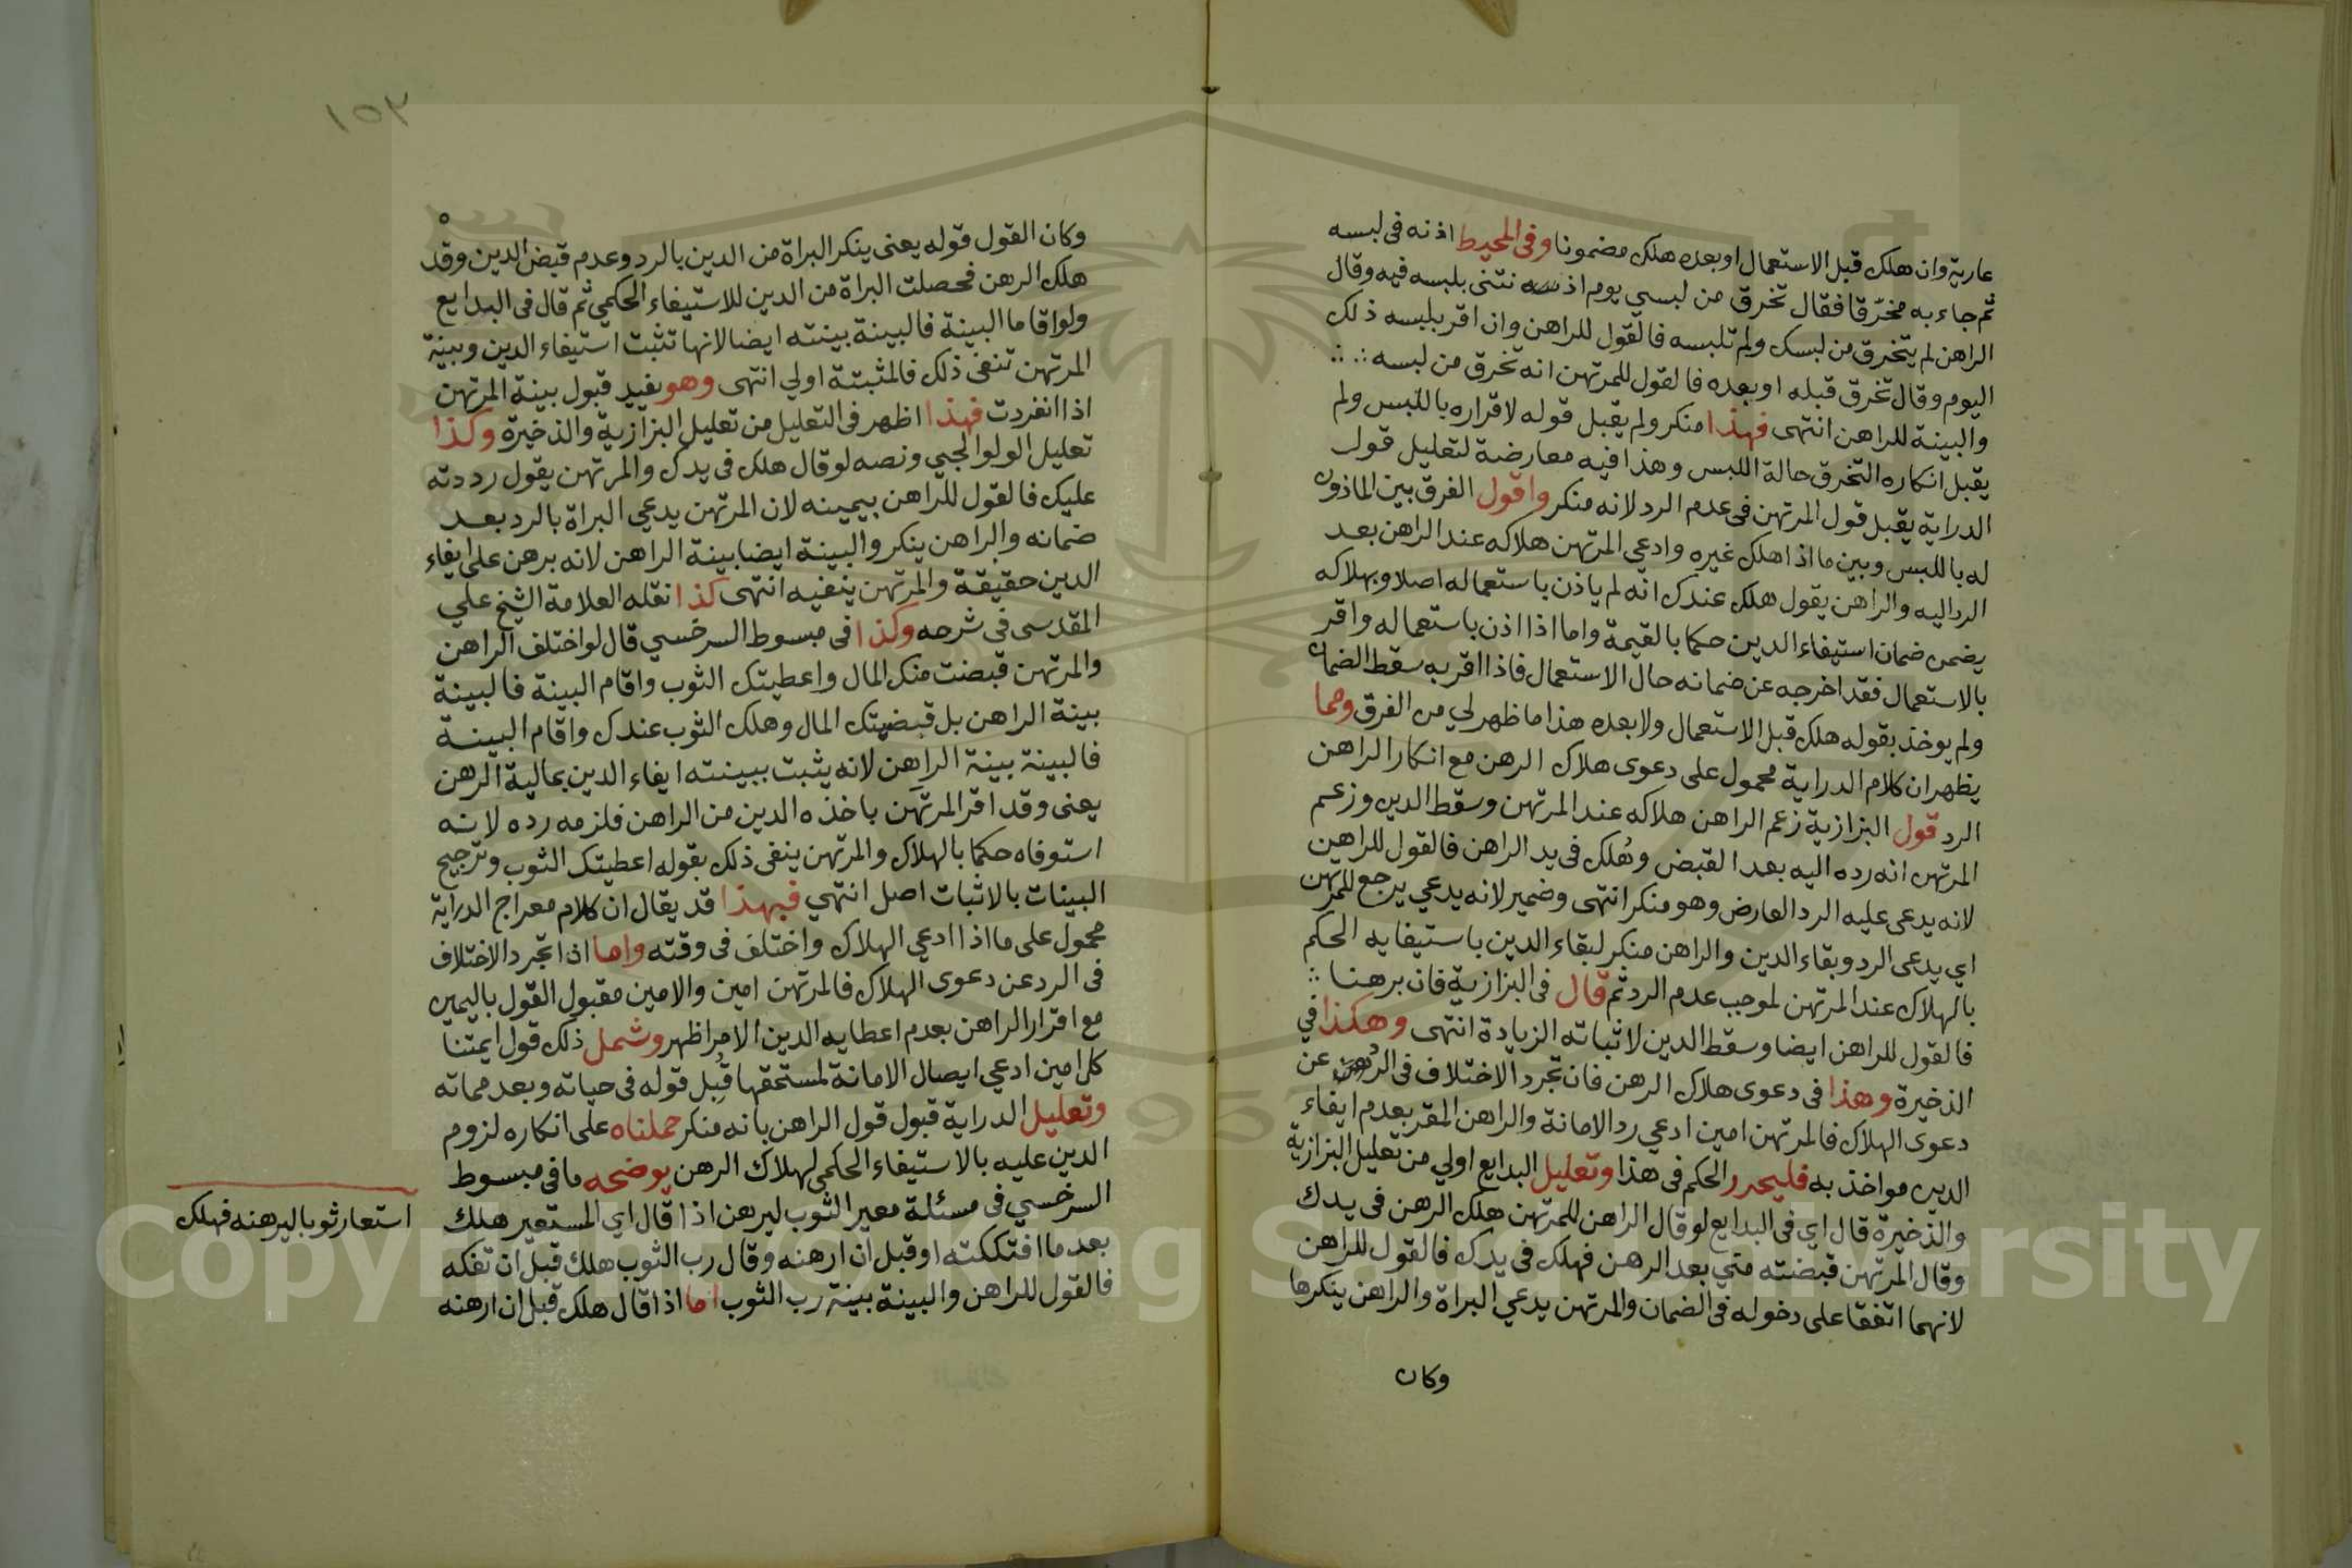 عارية وان هلك قبل الاستعمال او بعده هلك مضمونا وفي المحيط اذنه في لبسه
ثم جاء به مخرقا فقال تخرق من لبسي يوم اذ بلبسه فيه وقال
الراهن لم يتخرق من لبسك ولم تلبسه فالقول للراهن وان اقر بلبسه ذلك
اليوم وقال تخرق قبله او بعده فالقول للمرتهن انه تخرق من لبسه
والبينة للراهن انتهى فهذا منكر ولم يقبل قوله لاقراره باللبس ولم
يقبل انكاره التخرق حالة اللبس وهذا فيه معارضة لتعليل قول
الدراية يقبل قول المرتهن في عدم الرد لانه منكر واقول الفرق بين الماذون
له باللبس وبين ما اذا هلك غيره وادعي المرتهن هلاكه عند الراهن بعد
الرد اليه والراهن يقول هلك عندك انه لم ياذن باستعماله اصلا وبهلاكه
يضمن ضمان استيفاء الدين حكما بالقيمة واما اذا اذن باستعماله واقر
بالاستعمال فقد اخرجه عن ضمانه حال الاستعمال فاذا اقر به سقط الضمان
ولم يوخذ بقوله هلك قبل الاستعمال ولا بعده هذا ما ظهر لي من الفرق ومما
يظهر ان كلام الدراية محمول على دعوى هلاك الرهن مع انكار الراهن
الرد قول البزازية زعم الراهن هلاكه عند المرتهن وسقط الدين وزعم
المرتهن انه رده اليه بعد القبض وهلك في يد الراهن فالقول للراهن
لانه يدعي عليه الرد العارض وهو منكر انتهى وضمير لانه يدعي يرجع للمرتهن
اي يدعي الرد وبقاء الدين والراهن منكر لبقاء الدين باستيفايه الحكم
بالهلاك عند المرتهن لموجب عدم الرد ثم قال في البزازية فان برهنا
فالقول للراهن ايضا وسقط الدين لاثباته الزيادة انتهى وهكذا في
الذخيرة وهذا في دعوى هلاك الرهن فان تجرد الاختلاف في الرد عن
دعوى الهلاك فالمرتهن امين ادعي رد الامانة والراهن المقر بعدم ايفاء
الدين مواخذ به فليحرر الحكم في هذا وتعليل البدايع اولي من تعليل البزازية
والذخيرة قال اي في البدايع لو قال الراهن للمرتهن هلك الرهن في يدك
وقال المرتهن قبضته مني بعد الرهن فهلك في يدك فالقول للراهن
لانهما اتفقا على دخوله في الضمان والمرتهن يدعي البراة والراهن ينكرها
وكان
١٥٣
وكان القول قوله يعني ينكر البراة من الدين بالرد وعدم قبض الدين وقد
هلك الرهن فحصلت البراة من الدين للاستيفاء الحكمي ثم قال في البدايع
ولو اقاما البينة فالبينة بينته ايضا لانها تثبت استيفاء الدين وبينة
المرتهن تنفي ذلك فالمثبتة اولي انتهى وهو يفيد قبول بينة المرتهن
اذا انفردت فهذا اظهر في التعليل من تعليل البزازية والذخيرة وكذا
تعليل الولوالجي ونصه لو قال هلك في يدك والمرتهن يقول رددته
عليك فالقول للراهن بيمينه لان المرتهن يدعي البراة بالرد بعد
ضمانه والراهن ينكر والبينة ايضا بينة الراهن لانه برهن على ايفاء
الدين حقيقة والمرتهن ينفيه انتهى كذا نقله العلامة الشيخ علي
المقدسي في شرحه وكذا في مبسوط السرخسي قال لو اختلف الراهن
والمرتهن قبضت منك المال واعطيتك الثوب واقام البينة فالبينة
بينة الراهن بل قبضتك المال وهلك الثوب عندك واقام البينة
فالبينة بينة الراهن لانه يثبت ببينته ايفاء الدين بمالية الرهن
يعني وقد اقر المرتهن باخذه الدين من الراهن فلزمه رده لانه
استوفاه حكما بالهلاك والمرتهن ينفي ذلك بقوله اعطيتك الثوب وترجيح
البينات بالاثبات اصل انتهي فبهذا قد يقال ان كلام معراج الدراية
محمول على ما اذا ادعي الهلاك واختلف في وقته واما اذا تجرد الاختلاف
في الرد عن دعوى الهلاك فالمرتهن امين والامين مقبول القول باليمين
مع اقرار الراهن بعدم اعطايه الدين الامر اظهر وشمل ذلك قول ايمتنا
كل امين ادعي ايصال الامانة لمستحقها قبل قوله في حياته وبعد مماته
وتعليل الدراية قبول قول الراهن بانه منكر حملناه على انكاره لزوم
الدين عليه بالاستيفاء الحكمي لهلاك الرهن يوضحه ما في مبسوط
السرخسي في مسئلة معير الثوب ليرهن اذا قال اي المستعير هلك
بعد ما افتككته او قبل ان ارهنه وقال رب الثوب هلك قبل ان تفكه
فالقول للراهن والبينة بينة رب الثوب اما اذا قال هلك قبل ان ارهنه
استعار ثوبا ليرهنه فهلك
Copyright © King Saud University